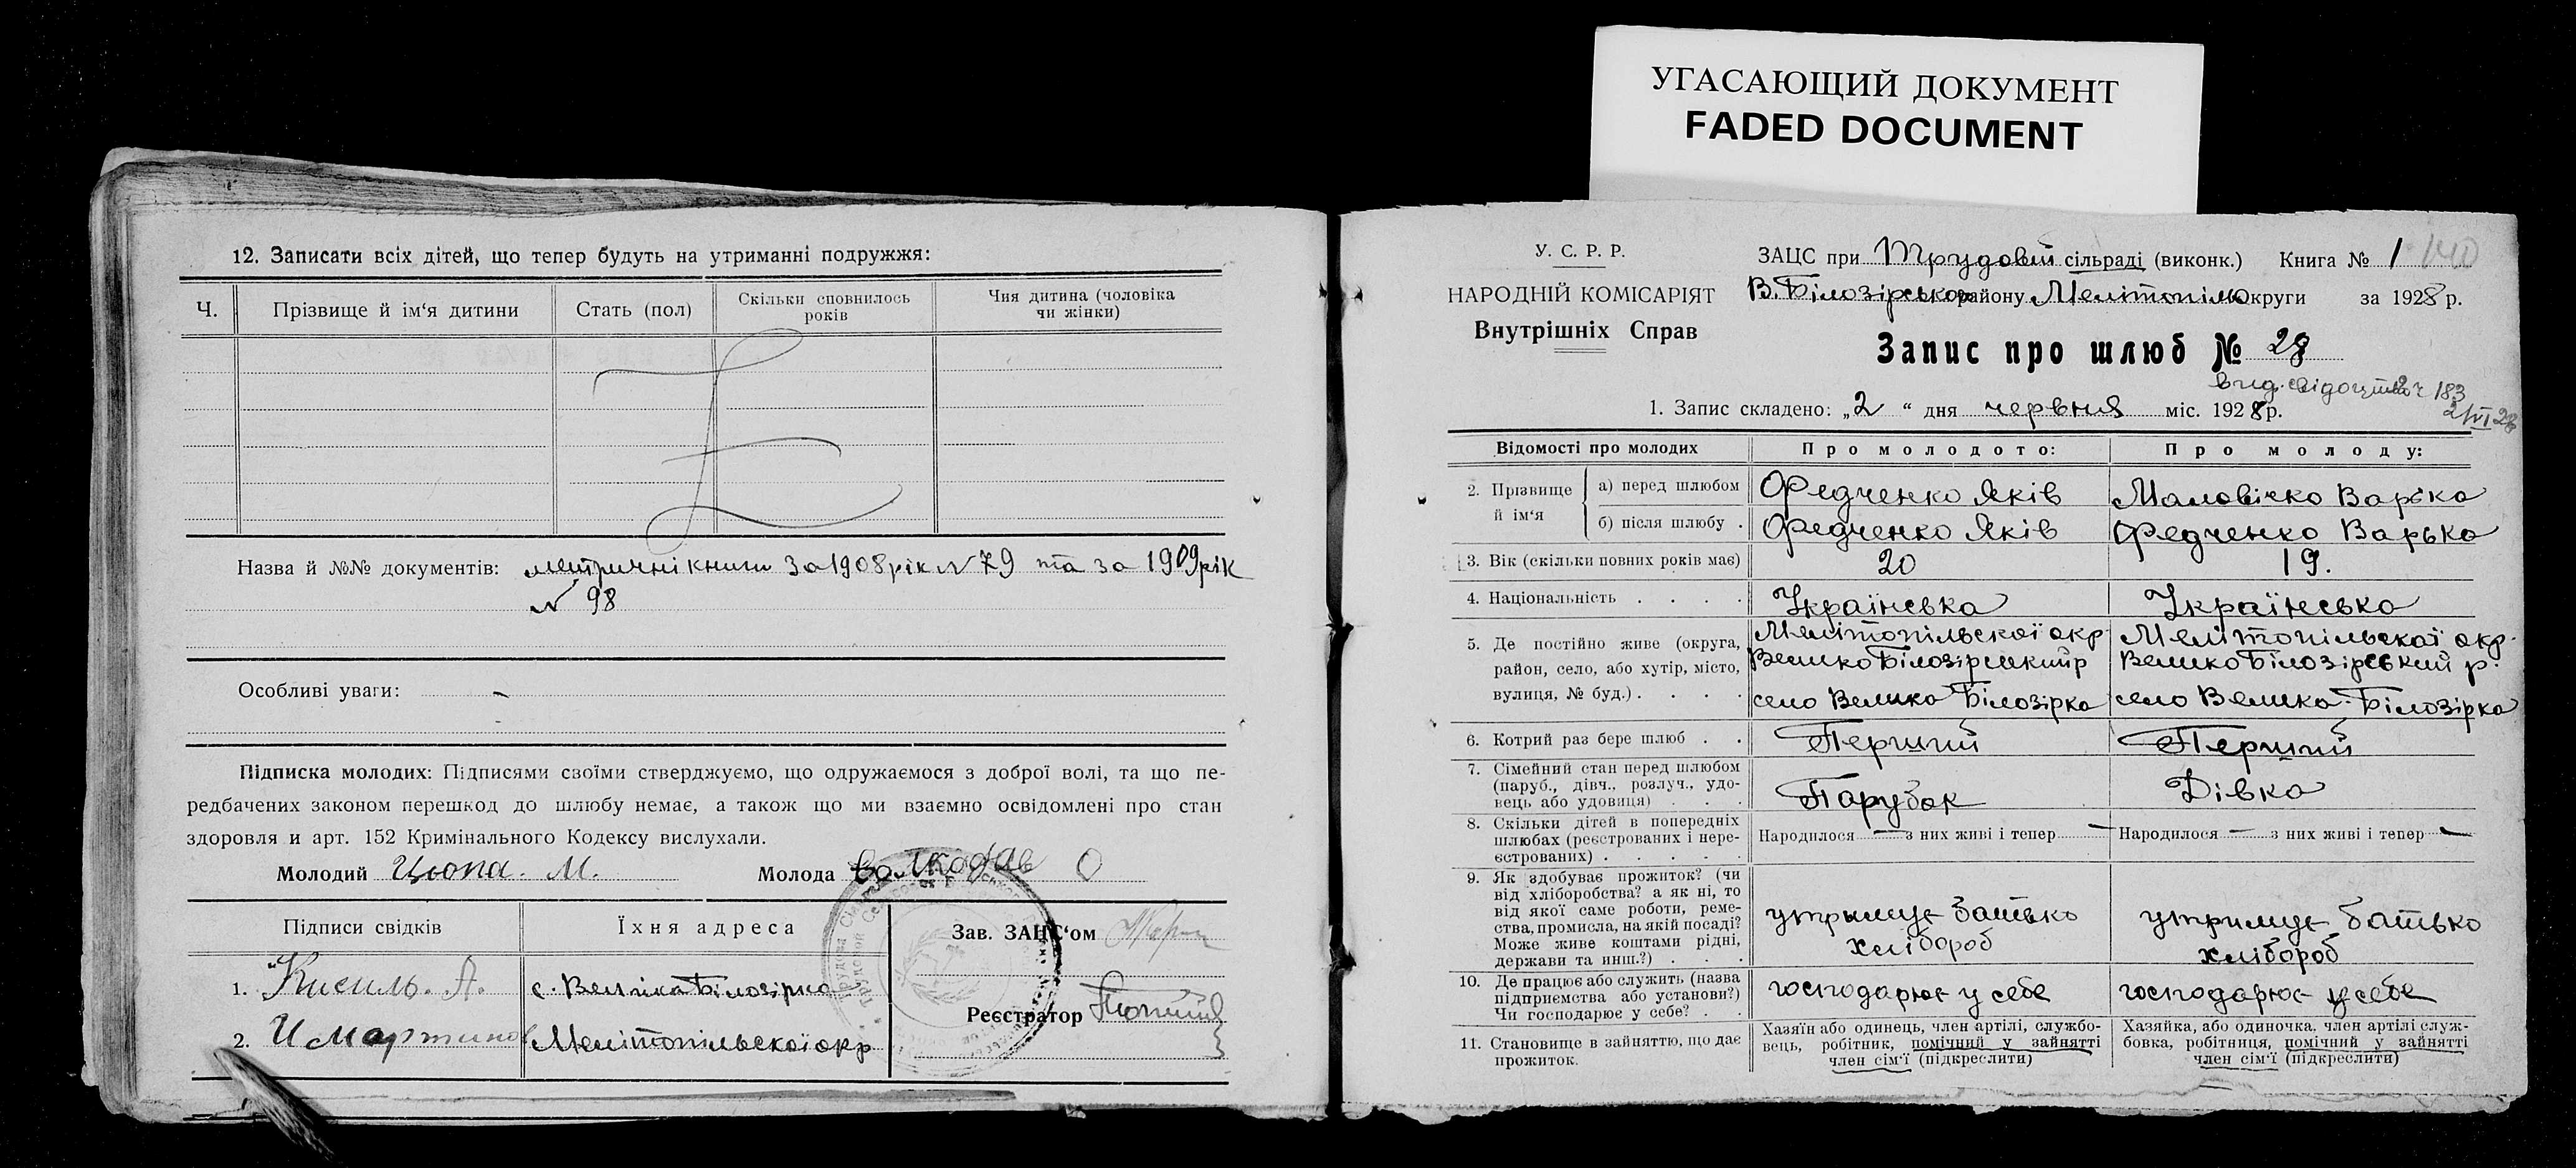 УГАСАЮЩИЙ ДОКУМЕНТ
FADED DOCUMENT
12. Записати всіх дітей, що тепер будуть на утриманні подружжя:
Ч.
Прізвище й ім‘я дитини
Стать (пол)
Скільки сповнилось
років
Чия дитина (чоловіка
чи жінки)
Назва й №№ документів: метричні книги за 1908 рік N 79 та за 1909 рік
N 98
Особливі уваги: –
Підписка молодих: Підписями своїми стверджуємо, що одружаємося з доброї волі, та що пе-
редбачених законом перешкод до шлюбу немає, а також що ми взаємно освідомлені про стан
здоровля и арт. 152 Кримінального Кодексу вислухали.
Молодий Цьопа. М. Молода Волкодав О
Підписи свідків
Їхня адреса
1. Кисиль. А. с. Велика Білозірка
2. И Мартинов Мелітопільскої окр
Зав. ЗАЦС‘ом
Реєстратор
У. С. Р. Р.
НАРОДНІЙ КОМІСАРІЯТ
Внутрішніх Справ
ЗАЦС при Трудовій сільраді (виконк.) Книга № 1 140
В. Білозірсько району Мелітопіль округи за 1928 р.
Запис про шлюб № 28
вид. свідоцтво ч 183
2/VI 28
1. Запис складено: „2“ дня червня міс. 1928 р.
Відомості про молодих
Про молодого:
Про молоду:
2. Прізвище й ім‘я
а) перед шлюбом Федченко Яків Маловічко Варька
б) після шлюбу . Федченко Яків Федченко Варька
3. Вік (скільки повних років має) 20 19.
4. Національність . . . . Українська Українська
5. Де постійно живе (округа,
район, село, або хутір, місто,
вулиця, № буд.) . . . .
Мелітопільскої окр
Велико Білозірський р
село Велика Білозірка
Мелітопільскої окр.
Велико Білозірський р.
село Велика-Білозірка
6. Котрий раз бере шлюб . . Перший Перший
7. Сімейний стан перед шлюбом
(паруб., дівч., розлуч., удо-
вець або удовиця) . . .
Парубок
Дівка
8. Скільки дітей в попередніх
шлюбах (реєстрованих і нере-
єстрованих) . . . . .
Народилося — з них живі і тепер —
Народилося — з них живі і тепер —
9. Як здобуває прожиток? (чи
від хліборобства? а як ні, то
від якої саме роботи, реме-
ства, промисла, на якій посаді?
Може живе коштами рідні,
держави та инш.?) . . .
утримує батько
хлібороб
утримує батько
хлібороб
10. Де працює або служить (назва
підприємства або установи?)
Чи господарює у себе? . .
господарює у себе
господарює у себе
11. Становище в зайняттю, що дає
прожиток.
Хазяїн або одинець, член артілі, службо-
вець, робітник, помічний у зайнятті
член сім‘ї (підкреслити)
Хазяйка, або одиночка, член артілі служ-
бовка, робітниця, помічний у зайнятті
член сім‘ї (підкреслити)